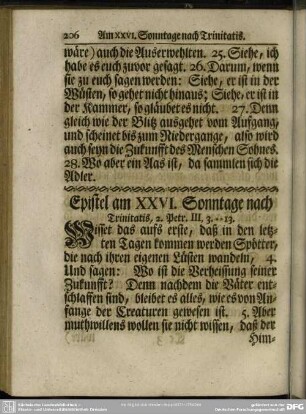 206 Am XXVI. Sonntage nach Trinitatis.
wäre) auch die Auserwehlten. 25. Siehe, ich
habe es euch zuvor gesagt. 26. Darum, wenn
sie zu euch sagen werden: Siehe, er ist in der
Wüsten, so gehet nicht hinaus; Siehe, er ist in
der Kammer, so gläubet es nicht. 27. Denn
gleich wie der Blitz ausgehet vom Aufgang,
und scheinet bis zum Niedergange, also wird
auch seyn die Zukunfft des Menschen Sohnes.
28. Wo aber ein Aas ist, da sammlen sich die
Adler.
Epistel am XXVI. Sonntage nach
Trinitatis, 2. Petr. III, 3. -- 13.
Wisset das aufs erste, daß in den letz-
ten Tagen kommen werden Spötter,
die nach ihren eigenen Lüsten wandeln, 4.
Und sagen: Wo ist die Verheissung seiner
Zukunfft? Denn nachdem die Väter ent-
schlaffen sind, bleibet es alles, wie es von An-
fange der Creaturen gewesen ist. 5. Aber
muthwillens wollen sie nicht wissen, daß der
Him-